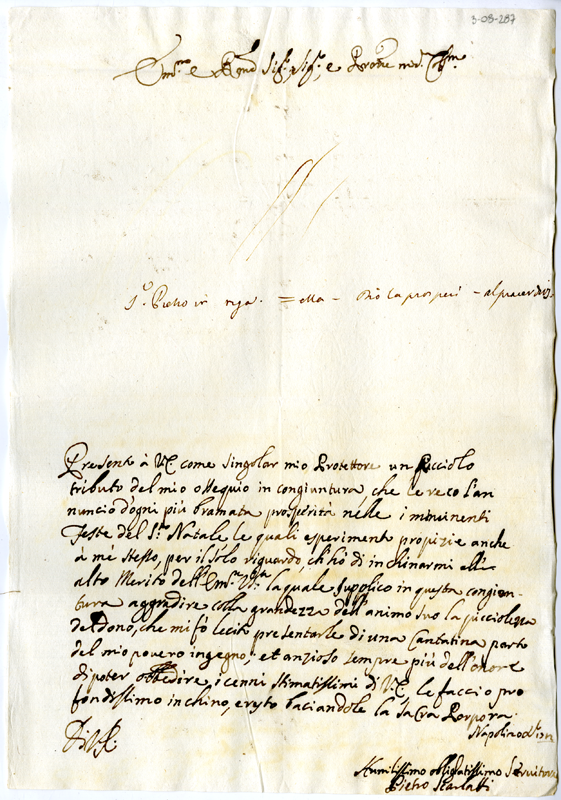 3-03-287
Em.mo e Rev.mo Sig.r Sig.r e Prone mio Col.mo
S.r Pietro in = ella – Dio la prosperi – al piacer di
Presento à V.E. come singolar mio Protettore un picciolo
tributo del mio ossequio in congiuntura, che le reco l'an
nuncio d'ogni più bramata prosperità nelle imminenti
Feste del S.mo Natale le quali esperimento propizie anche
à me stesso, per il solo riguardo, ch'hò di inchinarmi all'
alto Merito dell'Em.za V.ra la quale supplico in questa congion-
tura aggradire colla grandezza dell'animo suo la picciolezza
del dono, che mi fò lecito presentarle di una Cantatina parto
del mio povero ingegno; et anzioso sempre più dell'onore
di poter obbedire, i cenni stimatissimi di V.E. le faccio pro
fondissimo inchino, e resto baciandole la Sacra Porpora.
Napoli
Di V.E.
Humilissimo obligatissimo Servitore
Pietro Scarlatti